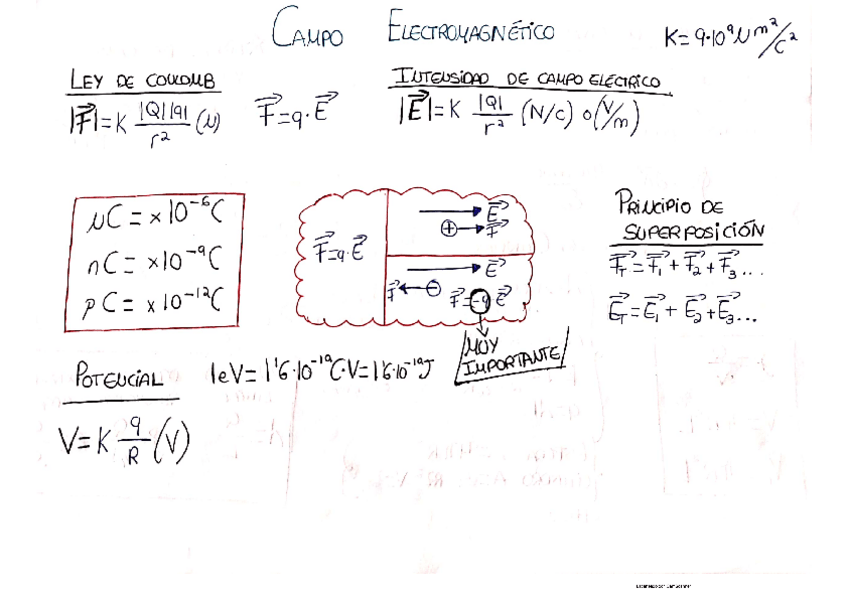 CAMPO ELECTROMAGNÉTICO
K=9·10⁹Nm²/C²
LEY DE COULOMB
|F⃗|=K |Q||q|/r² (N)
F⃗=q·E⃗
INTENSIDAD DE CAMPO ELÉCTRICO
|E⃗|=K |Q|/r² (N/C) o (V/m)
μC = x10⁻⁶C
nC = x10⁻⁹C
pC = x10⁻¹²C
F⃗=q·E⃗
E⃗
+ F⃗
E⃗
F⃗ - F⃗=-q·E⃗
MUY
IMPORTANTE
PRINCIPIO DE
SUPERPOSICIÓN
F⃗T=F⃗1+F⃗2+F⃗3...
E⃗T=E⃗1+E⃗2+E⃗3...
POTENCIAL
1eV=1'6·10⁻¹⁹C·V=1'6·10⁻¹⁹J
V=K q/R (V)